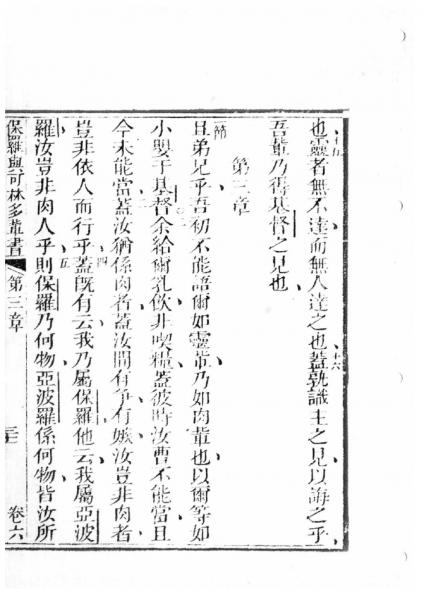 也靈者無不達而無人達之也蓋孰識主之見以誨之乎
吾輩乃得基督之見也
第三章
且弟兄乎吾初不能語爾如靈輩乃如肉輩也以爾等如
小嬰于基督余給爾乳飲非喫糧蓋彼時汝曹不能當且
今未能當蓋汝猶係肉者蓋汝間有爭有嫉汝豈非肉者
豈非依人而行乎蓋旣有云我乃屬保羅他云我屬亞波
羅汝豈非肉人乎則保羅乃何物亞波羅係何物皆汝所
保羅與可林多輩書 第三章 卷六